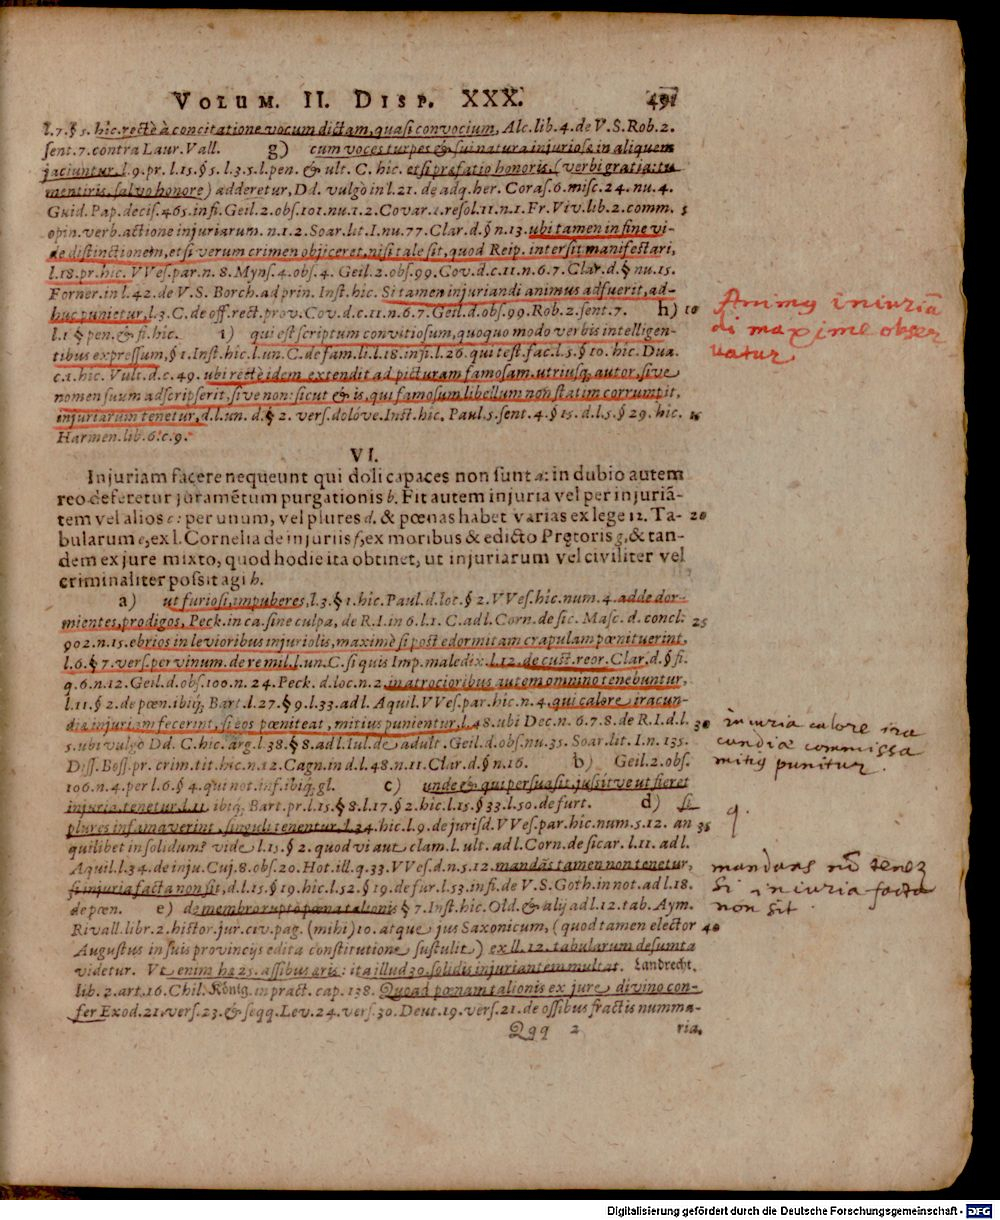 VOLUM. II. DISP. XXX. 491
l.7.§ 5. hic.rectè à concitatione vocum dictam, quasi convocium, Alc.lib.4.de V.S.Rob.2.
sent.7.contra Laur.Vall. g) cum voces turpes & sui natura injuriosæ in aliquem
jaciuntur, l.9.pr.l.15.§ 5.l.3.5.l.pen. & ult. C. hic. etsi præfatio honoris, (verbi gratia: tu
mentiris, salvo honore) adderetur, Dd. vulgò in l.21. de adq.her. Coras.6.misc.24.nu.4.
Guid. Pap.decis.465.infi.Geil.2.obs.101.nu.1.2.Covar.1.resol.11.n.1.Fr.Viv.lib.2.comm. 5
opin.verb.actione injuriarum. n.1.2.Soar.lit.I.nu.77.Clar.d.§ n.13.ubi tamen in fine vi-
de distinctionem, etsi verum crimen objiceret, nisi tale sit, quod Reip. intersit manifestari,
l.18.pr.hic. VVes.par.n.8.Myns.4.obs.4. Geil.2.obs.99.Cov.d.c.11.n.6.7.Clar.d.§ nu.15.
Forner.in l.42.de V.S. Borch.ad prin. Inst.hic. Si tamen injuriandi animus adfuerit, ad-
huc punietur, l.3.C.de off.rect.prov.Cov.d.c.11.n.6.7.Geil.d.obs.99.Rob.2.sent.7. h) 10
l.1 § pen.& fi.hic. i) qui est scriptum convitiosum, quoquo modo verbis intelligen-
tibus expressum, § 1.Inst.hic.l.un.C.de fam.li.l.18.infi.l.26.qui test.fac.l.5.§ 10.hic.Dua.
c.1.hic. Vult.d.c.49. ubi rectè idem extendit ad picturam famosam. utriusq; autor, sive
nomen suum adscripserit, sive non: sicut & is, qui famosum libellum non statim corrumpit,
injuriarum tenetur, d.l.un. d.§ 2. vers.dolóve.Inst.hic, Paul.5.sent.4.§ 15.d.l.5.§ 29.hic. 15
Harmen.lib.6.c.9.
Animus iniuriā
di maxime obser
uatur
VI.
Injuriam facere nequeunt qui doli capaces non sunt a: in dubio autem
reo deferetur juramētum purgationis b. Fit autem injuria vel per injuriā-
tem vel alios c: per unum, vel plures d. & pœnas habet varias ex lege 12. Ta- 20
bularum e, ex l. Cornelia de injuriis f, ex moribus & edicto Prętoris g, & tan-
dem ex jure mixto, quod hodie ita obtinet, ut injuriarum vel civiliter vel
criminaliter possit agi h.
a) ut furiosi, impuberes, l.3.§ 1.hic.Paul.d.lot.§ 2.VVes.hic.num.4.adde dor-
mientes, prodigos, Peck.in ca.sine culpa, de R.I.in 6.l.1. C.ad l.Corn.de sic. Masc. d. concl: 25
902.n.15.ebrios in levioribus injuriolis, maximè si post edormitam crapulam pœnituerint,
l.6.§ 7.vers.per vinum.de re mil.l.un.C.si quis Imp.maledix.l.12.de cust.reor.Clar.d.§ fi.
q.6.n.12.Geil.d.obs.100.n.24.Peck.d.loc.n.2.in atrocioribus autem omnino tenebuntur,
l.11.§ 2.de pœn.ibiq; Bart.l.27.§ 9.l.33.ad l. Aquil.VVes.par.hic.n.4.qui calore iracun-
diæ injuriam fecerint, si eos pœniteat, mitius punientur, l.48.ubi Dec.n.6.7.8.de R.I.d.l. 30
5.ubi vulgò Dd. C.hic.arg.l.38.§ 8.ad l.Iul.de adult.Geil.d.obs.nu.35. Soar.lit.I.n.135.
Diss.Boss.pr.crim.tit.hic.n.12.Cagn.in d.l.48.n.11.Clar.d.§ n.16. b) Geil.2.obs.
106.n.4.per l.6.§ 4.qui not.inf.ibiq; gl. c) unde & qui persuasit, jussitve ut fieret
injuria, tenetur, l.11 ibiq; Bart.pr.l.15.§ 8.l.17.§ 2.hic.l.15.§ 33.l.50.de furt. d) si
plures infamaverint, singuli tenentur, l.34.hic.l.9.de jurisd.VVes.par.hic.num.5.12. an 35
quilibet in solidum? vide l.15.§ 2.quod vi aut clam.l.ult.ad l.Corn.de sicar.l.11.ad l.
Aquil.l.34.de inju.Cuj.8.obs.20.Hot.ill.q.33.VVes.d.n.5.12.mandās tamen non tenetur,
si injuria facta non sit, d.l.15.§ 19.hic.l.52.§ 19.de fur.l.53.infi.de V.S.Goth.in not.ad l.18.
de pœn. e) de membro rupto pœna talionis § 7.Inst.hic.Old.& alij ad l.12.tab.Aym.
Rivall.libr.2.histor.jur.civ.pag.(mihi)10.atque jus Saxonicum, (quod tamen elector 40
Augustus in suis provincijs edita constitutione sustulit) ex ll.12.tabularum desumta
videtur. Vt enim hæ 25.assibus æris: ita illud 30.solidis injuriantem multat. Landrecht.
lib.2.art.16.Chil.König.in pract.cap.138. Quoad pœnam talionis ex jure divino con-
fer Exod.21.vers.23.& seqq.Lev.24.vers.30.Deut.19.vers.21.de ossibus fractis numma-
Qqq 2 ria.
iniuria calore ira
cundiæ commissa
mitius punitur.
q.
mandans nō tenetur
Si iniuria facta
non sit
Digitalisierung gefördert durch die Deutsche Forschungsgemeinschaft - DFG